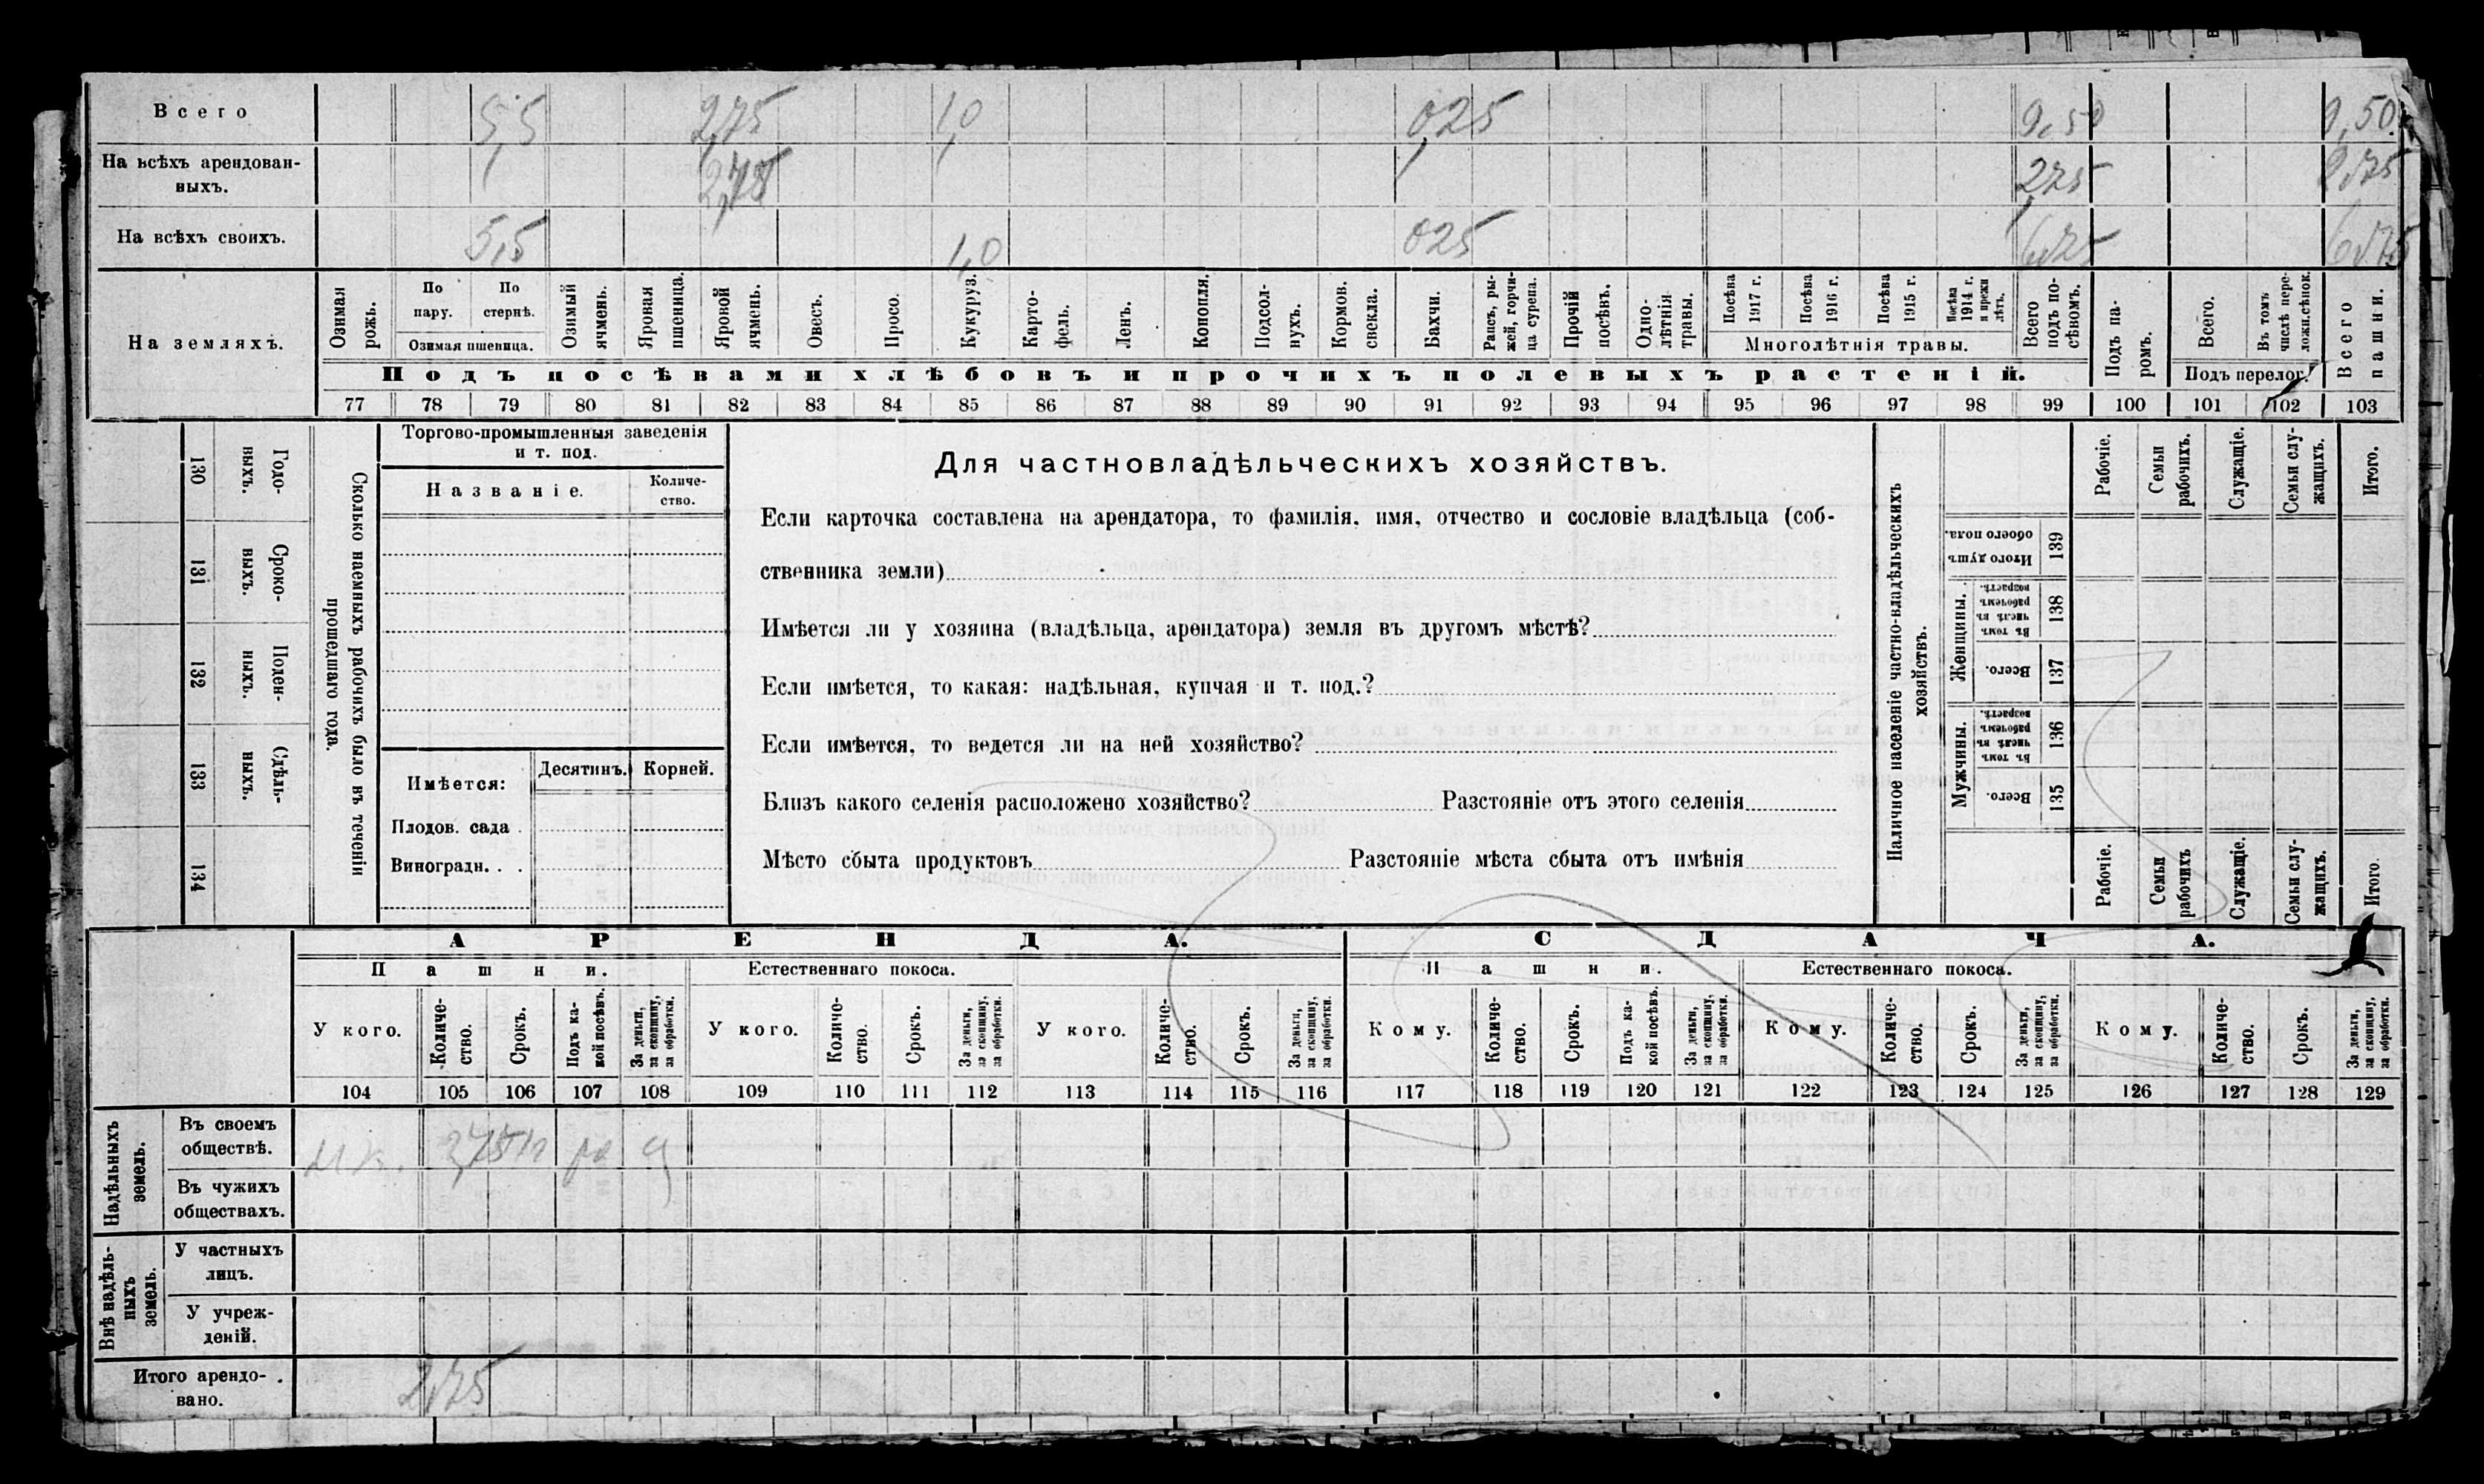 Всего 5,5 2,75 1,0 0,25 9,50 9,50
На всѣхъ арендован-
ныхъ. 2,75 2,75 2,75
На всѣхъ своихъ. 5,5 1,0 025 6,75 6,75
На земляхъ.
Озимая рожь.
По пару.
По стернѣ.
Озимая пшеница.
Озимый ячмень.
Яровая пшеница.
Яровой ячмень.
Овесъ.
Просо.
Кукуруз.
Карто-
фель.
Ленъ.
Конопля.
Подсол-
нухъ.
Кормов.
свекла.
Бахчи.
Рапсъ, ры-
жей, горчи-
ца сурепа.
Прочій
посѣвъ.
Одно-
лѣтнія
травы.
Посѣва
1917 г.
Посѣва
1916 г.
Посѣва
1915 г.
Посѣва
1914 г.
и прежн
лѣтъ.
Многолѣтнія травы.
Всего
подъ по-
сѣвомъ.
Подъ па-
ромъ.
Всего.
Въ томъ
числѣ пере-
ложн.сѣнок.
Подъ перелог.
Всего
пашни.
Подъ посѣвами хлѣбовъ и прочихъ полевыхъ растеній.
77 78 79 80 81 82 83 84 85 86 87 88 89 90 91 92 93 94 95 96 97 98 99 100 101 102 103
130 Годо-
выхъ.
131 Сроко-
выхъ.
132 Поден-
ныхъ.
133 Сдѣль-
ныхъ.
134
Сколько наемныхъ рабочихъ было въ теченіи
прошедшаго года.
Торгово-промышленныя заведенія
и т. под.
Названіе.
Количе-
ство.
Имѣется:
Десятинъ. Корней.
Плодов. сада .
Виноградн. . .
Для частновладѣльческихъ хозяйствъ.
Если карточка составлена на арендатора, то фамилія, имя, отчество и сословіе владѣльца (соб-
ственника земли)
Имѣется ли у хозяина (владѣльца, арендатора) земля въ другомъ мѣстѣ?
Если имѣется, то какая: надѣльная, купчая и т. под.?
Если имѣется, то ведется ли на ней хозяйство?
Близъ какого селенія расположено хозяйство? Разстояніе отъ этого селенія
Мѣсто сбыта продуктовъ Разстояніе мѣста сбыта отъ имѣнія
Наличное населеніе частно-владѣльческихъ
хозяйствъ.
Рабочіе.
Семьи
рабочихъ.
Служащіе.
Семьи слу-
жащихъ.
Итого.
Итого душъ
обоего пола.
139
Женщины.
Въ томъ
числѣ въ
рабочемъ
возрастѣ.
138
Всего.
137
Мужчины.
Въ томъ
числѣ въ
рабочемъ
возрастѣ.
136
Всего.
135
Рабочіе.
Семьи
рабочихъ
Служащіе.
Семьи слу-
жащихъ.
Итого.
АРЕНДА. СДАЧА.
Пашни. Естественнаго покоса. Пашни. Естественнаго покоса.
У кого.
Количе-
ство.
Срокъ.
Подъ ка-
кой посѣвъ.
За деньги,
за скопщину,
за обработки.
У кого.
Количе-
ство.
Срокъ.
За деньги,
за скопщину,
за обработки.
У кого.
Количе-
ство.
Срокъ.
За деньги,
за скопщину,
за обработки.
Кому.
Количе-
ство.
Срокъ.
Подъ ка-
кой посѣвъ.
За деньги,
за скопщину,
за обработки.
Кому.
Количе-
ство.
Срокъ.
За деньги,
за скопщину,
за обработки.
Кому.
Количе-
ство.
Срокъ.
За деньги,
за скопщину,
за обработки.
104 105 106 107 108 109 110 111 112 113 114 115 116 117 118 119 120 121 122 123 124 125 126 127 128 129
Надѣльныхъ
земель.
Въ своемъ
обществѣ. 2,75
Въ чужихъ
обществахъ.
Внѣ надѣль-
ныхъ
земель.
У частныхъ
лицъ.
У учреж-
деній.
Итого арендо-
вано. 2,75